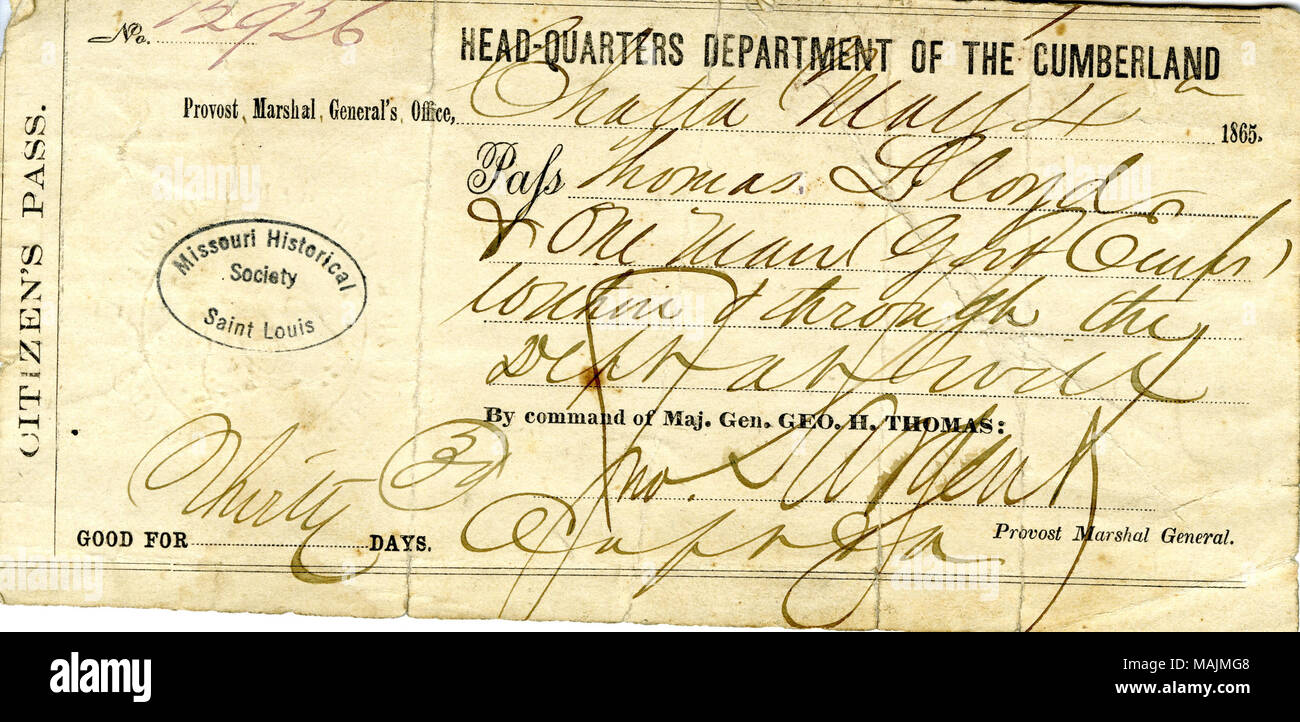 No. 12926
HEAD-QUARTERS DEPARTMENT OF THE CUMBERLAND
Provost Marshal General's Office, Chatta May 4th 1865.
CITIZEN'S PASS.
Pass Thomas Lloyd
& One Man (Govt Emps)
within & through the
Dept at will
Missouri Historical
Society
Saint Louis
By command of Maj. Gen. GEO. H. THOMAS:
Jno.
Provost Marshal General.
Capt &
GOOD FOR Thirty (30) DAYS.
a
alamy
alamy
Image ID: MAJMG8
www.alamy.com